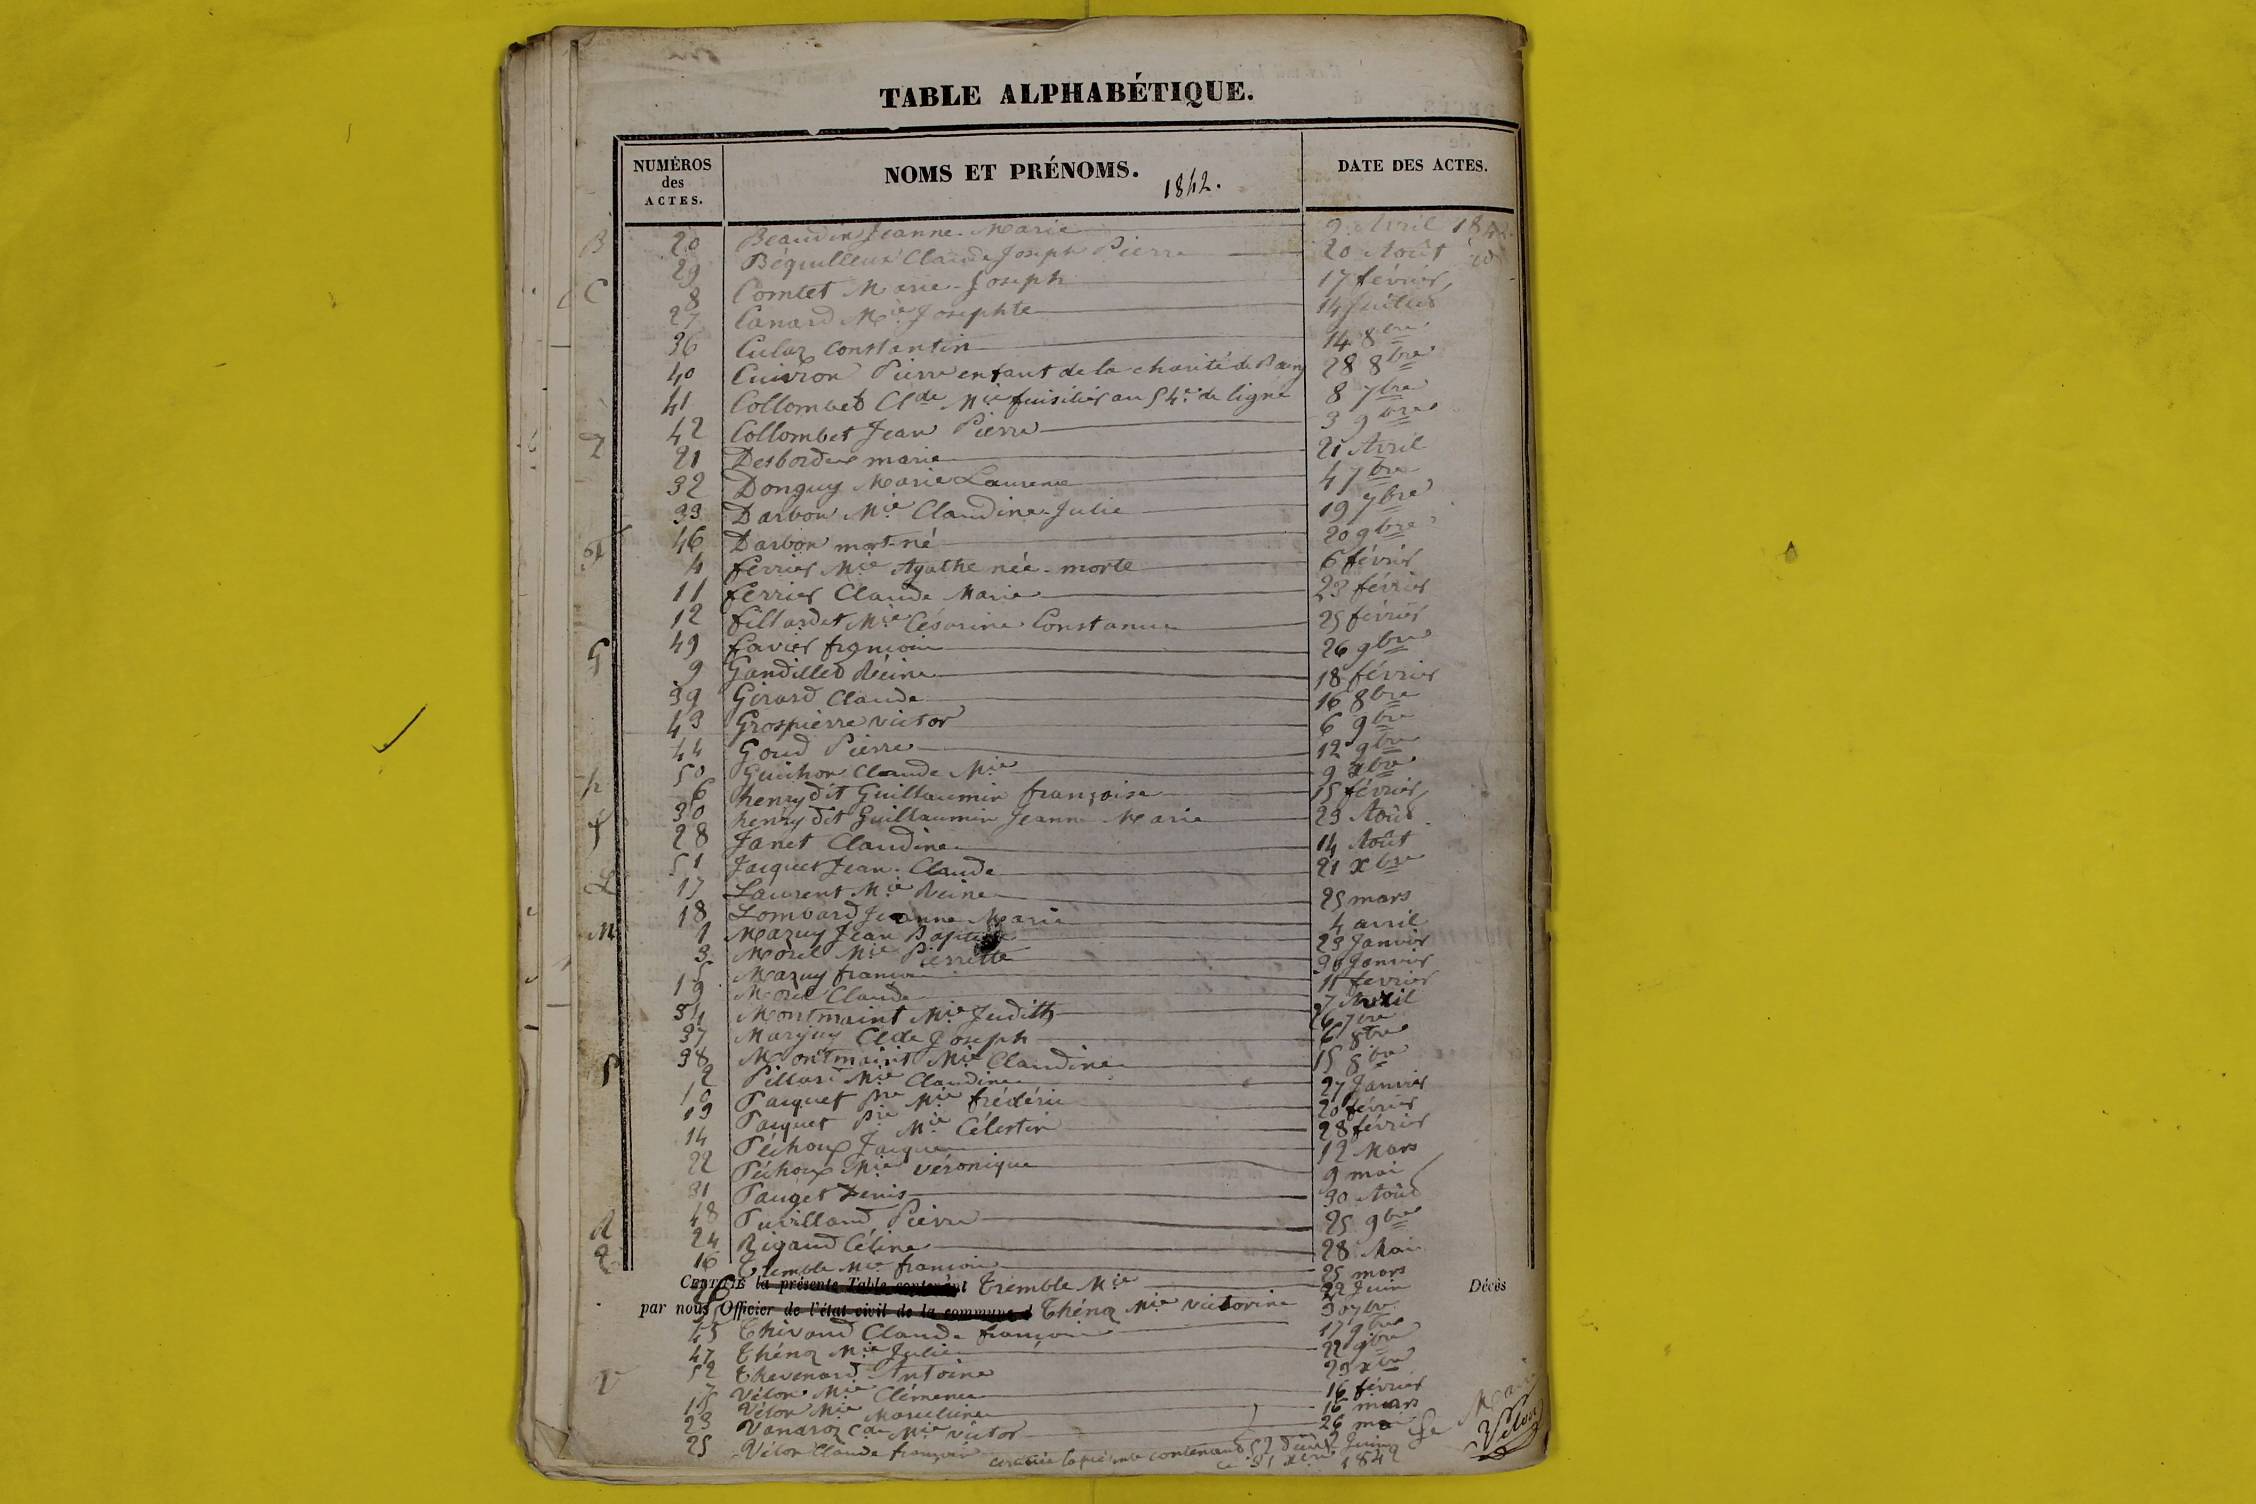 TABLE ALPHABÉTIQUE.
NUMÉROS des ACTES. NOMS ET PRÉNOMS. 1842. DATE DES ACTES.
B 20 Beaudin Jeanne Marie 9 Avril 1842
29 Béquilleux Claude Joseph Pierre 20 Août id
C 8 Comtet Marie Joseph 17 février
27 Canard Mie Josephte 14 Juillet
36 Culaz Constantin 14 8bre
40 Cuivron Pierre enfant de la charité de Bourg 28 8bre
41 Collombet Clde Mie fuisilier au 54e de ligne 8 7bre
42 Collombet Jean Pierre 3 9bre
D 21 Desbordes marie 21 Avril
32 Donguy Marie Laurence 4 7bre
33 Darbon Mie Claudine Julie 19 7bre
46 Darbon mort-né 20 9bre
F 4 ferrier Mie Agathe née-morte 6 févrir
11 ferrier Claude Marie 23 février
12 fillardet Mie Césarine Constance 25 février
49 favier françois 26 9bre
G 9 Gandillet Réine 18 février
39 Girard Claude 16 8bre
43 Grospierre victor 6 9bre
44 Goud Pierre 12 9bre
50 Guichon Claude Mie 9 xbre
h 6 henry dit Guillaumin françoise 15 février
30 henry dit Guillaumin Jeanne Marie 23 Août
J 28 Janet Claudine 14 Août
51 Jacquet Jean Claude 21 xbre
L 17 Laurent Mie Reine 25 mars
18 Lombard Jeanne Marie 4 avril
M 1 Mazuy Jean Baptiste 23 Janvir
3 Morel Mie Pierrette 30 Janvier
5 Mazuy françois 11 fevrier
19 Morel Claude 7 Avril
34 Montmaint Mie Judith 26 7bre
37 Mazuy Clde Joseph 6 8bre
38 Montmaint Mie Claudine 15 8bre
P 2 Pillard Mie Claudine 27 Janvier
10 Pacquet Pre Mie frédéric 20 février
13 Pacquet Pre Mie Célestin 28 février
14 Péchoux Jacques 12 Mars
22 Péchoux Mie véronique 9 mai
31 Pauget Denis 30 Août
48 Puvilland Pierre 25 9bre
R 24 Rigaud Céline 28 Mai
16 Tremble Mie françoise 25 mars
CERTIFIÉ la présente Table contenant Tremble Mie 22 Juin Décès
par nous Officier de l'état civil de la commune d Thénoz Mie victorine 30 7bre
45 Thivand Claude françois 17 9bre
47 Thénoz Mie Julie 22 9bre
52 Thevenard Antoine 29 xbre
V 7 Vélon Mie Clémence 16 février
15 Vélon Mie Marceline 16 mars
23 Vanaroz Cde Mie victor 26 mai
25 Vélon Claude françois Juin
certifié la présente contenant 52 décès
ce 31 xbre 1842
Le Maire
Vélon